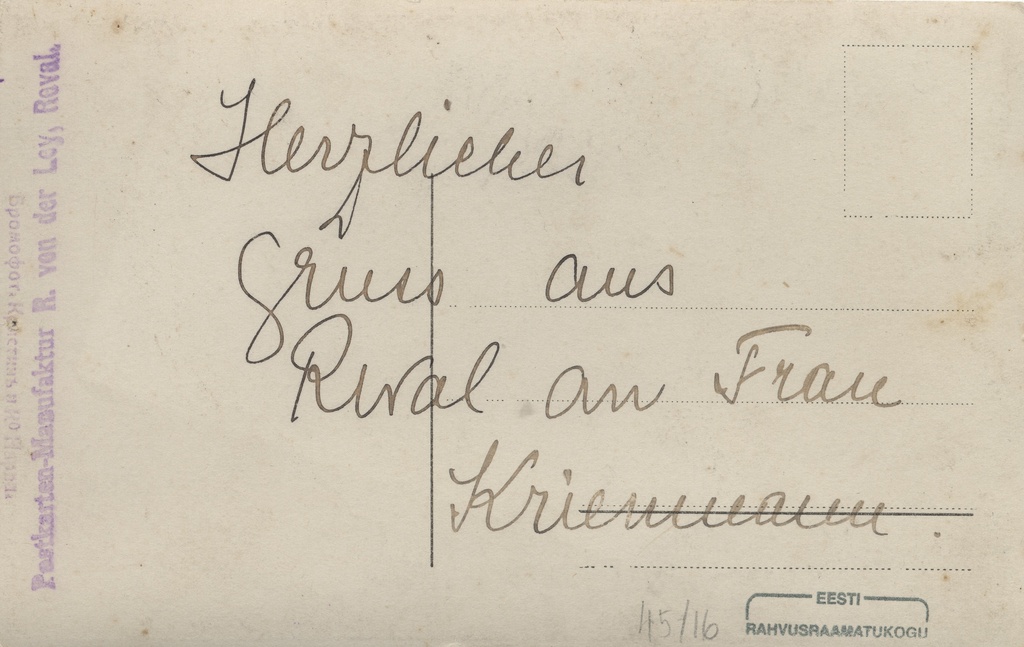 Herzlicher
Gruss aus
Reval an Frau
Kriemmann.
Postkarten-Manufaktur R. von der Ley, Reval.
45/16
EESTI
RAHVUSRAAMATUKOGU